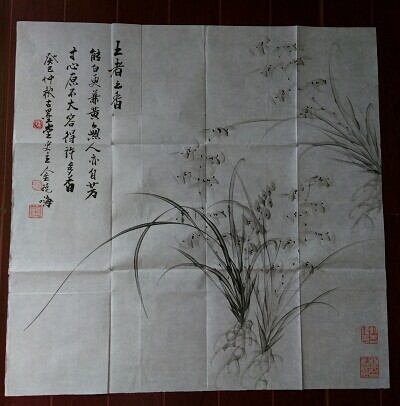 王者之香
能白更兼黄無人亦自芳
寸心原不大容得許多香
癸巳仲秋古墨堂史主金曉海